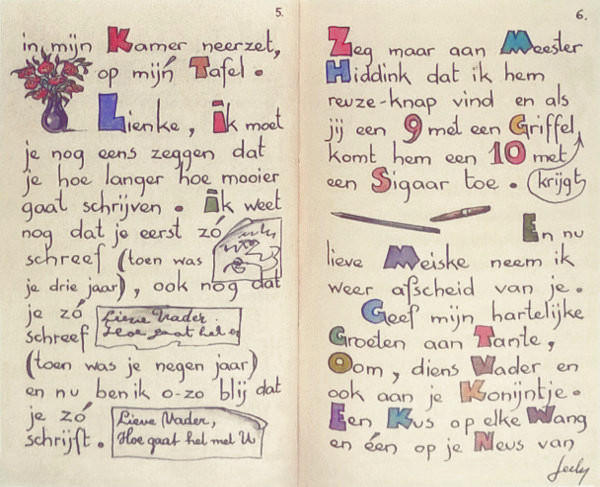 5.
in mijn Kamer neerzet,
op mijn Tafel.
Lienke, ik moet
je nog eens zeggen dat
je hoe langer hoe mooier
gaat schrijven. ik weet
nog dat je eerst zó
schreef (toen was
je drie jaar), ook nog dat
je zó
Lieve Vader.
Hoe gaat het
schreef
(toen was je negen jaar)
en nu ben ik o-zo blij dat
je zó
Lieve Vader,
schrijft.
Hoe gaat het met U
6.
Zeg maar aan Meester
Hiddink dat ik hem
reuze-knap vind en als
jij een 9 met een Griffel
komt hem een 10 met
een Sigaar toe. krijgt
En nu
lieve Meiske neem ik
weer afscheid van je.
Geef mijn hartelijke
Groeten aan Tante,
Oom, diens Vader en
ook aan je Konijntje.
Een Kus op elke Wang
en één op je Neus van